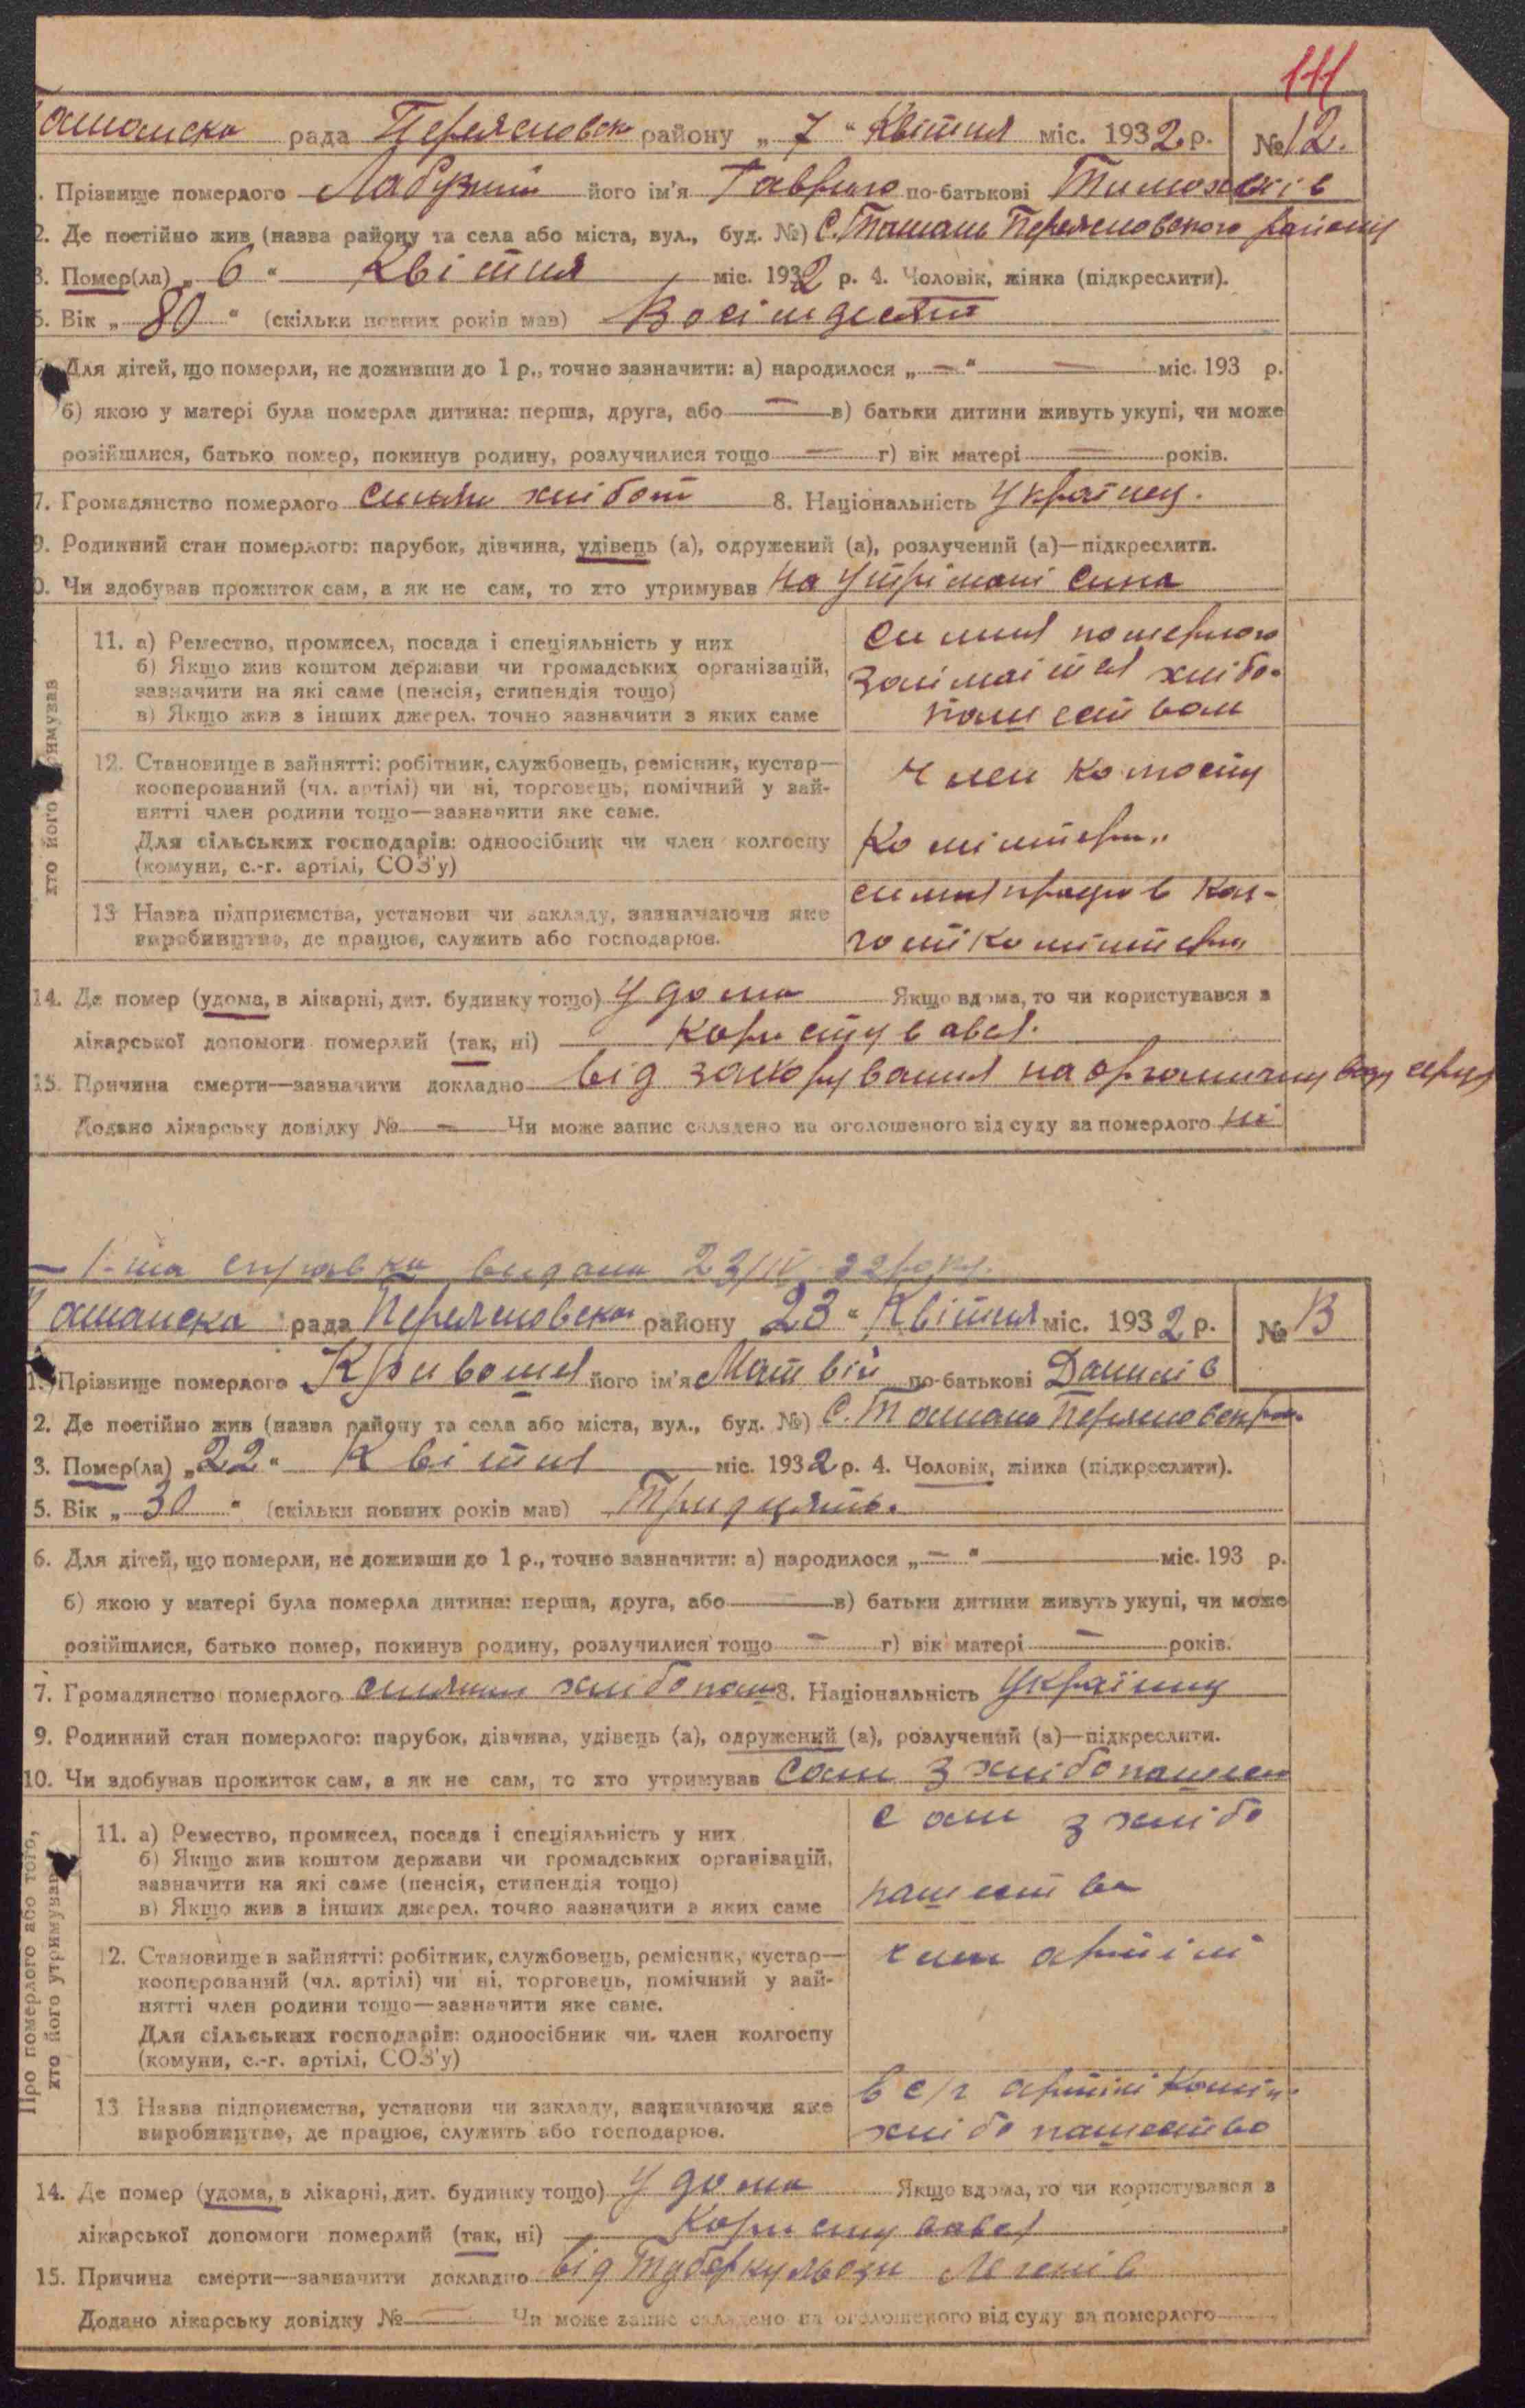 111
Ташанска рада Переясловськ району „ 7 “ Квітня міс. 1932 р. № 12.
1. Прізвище померлого його ім'я Гаврило по-батькові
2. Де постійно жив (назва району та села або міста, вул., буд. №) С. Ташань Переясловського району
3. Помер(ла) „ 6 “ Квітня міс. 1932 р. 4. Чоловік, жінка (підкреслити).
5. Вік „ 80 “ (скільки повних років мав) Восімдесят
6. Для дітей, що померли, не доживши до 1 р., точно зазначити: а) народилося „ — “ — міс. 193 р.
б) якою у матері була померла дитина: перша, друга, або — в) батьки дитини живуть укупі, чи може
розійшлися, батько помер, покинув родину, розлучилися тощо — г) вік матері — років.
7. Громадянство померлого хлібоп 8. Національність Українец.
9. Родинний стан померлого: парубок, дівчина, удівець (а), одружений (а), розлучений (а)—підкреслити.
10. Чи здобував прожиток сам, а як не сам, то хто утримував На утрімані сина
хто його утримував
11. а) Ремество, промисел, посада і спеціяльність у них
б) Якщо жив коштом держави чи громадських організацій,
зазначити на які саме (пенсія, стипендія тощо)
в) Якщо жив з інших джерел, точно зазначити з яких саме
симия померлого
займаітся хлібо-
пашеством
12. Становище в зайнятті: робітник, службовець, ремісник, кустар—
кооперований (чл. артілі) чи ні, торговець, помічний у зай-
нятті член родини тощо—зазначити яке саме.
Для сільських господарів: одноосібник чи член колгоспу
(комуни, с.-г. артілі, СОЗ'у)
Член Колгоспу
Комінтерн„
13 Назва підприємства, установи чи закладу, зазначаючи яке
виробництво, де працює, служить або господарює.
симия працю в Кол-
госпі Комінтерн
14. Де помер (удома, в лікарні, дит. будинку тощо) У дома Якщо вдома, то чи користувався з
лікарської допомоги померлий (так, ні) Користувався.
15. Причина смерти—зазначити докладно від захорування на органичну ваду серця
Додано лікарську довідку № — Чи може запис складено на оголошеного від суду за померлого ні
— 1-ша справка видана 23/IV 32 року.
Ташанска рада Переясловська району 23 “ Квітня міс. 1932 р. № 13
1. Прізвище померлого Кривошия його ім'я Матвій по-батькові Данилів
2. Де постійно жив (назва району та села або міста, вул., буд. №) С. Ташань Переясловск р.
3. Помер(ла) „ 22 “ Квітня міс. 1932 р. 4. Чоловік, жінка (підкреслити).
5. Вік „ 30 “ (скільки повних років мав) Тридцять.
6. Для дітей, що померли, не доживши до 1 р., точно зазначити: а) народилося „ — “ міс. 193 р.
б) якою у матері була померла дитина: перша, друга, або — в) батьки дитини живуть укупі, чи може
розійшлися, батько помер, покинув родину, розлучилися тощо — г) вік матері — років.
7. Громадянство померлого селянин хлібопаш 8. Національність Українец
9. Родинний стан померлого: парубок, дівчина, удівець (а), одружений (а), розлучений (а)—підкреслити.
10. Чи здобував прожиток сам, а як не сам, то хто утримував Сам з хлібопашест
Про померлого або того,
хто його утримував
11. а) Ремество, промисел, посада і спеціяльність у них
б) Якщо жив коштом держави чи громадських організацій,
зазначити на які саме (пенсія, стипендія тощо)
в) Якщо жив з інших джерел, точно зазначити з яких саме
сам з хлібо
пашества
12. Становище в зайнятті: робітник, службовець, ремісник, кустар—
кооперований (чл. артілі) чи ні, торговець, помічний у зай-
нятті член родини тощо—зазначити яке саме.
Для сільських господарів: одноосібник чи член колгоспу
(комуни, с.-г. артілі, СОЗ'у)
член артілі
13 Назва підприємства, установи чи закладу, зазначаючи яке
виробництво, де працює, служить або господарює.
в с/г артілі Комін.
хлібопашество
14. Де помер (удома, в лікарні, дит. будинку тощо) У дома Якщо вдома, то чи користувався з
лікарської допомоги померлий (так, ні) Користувався
15. Причина смерти—зазначити докладно від Туберкульози Легенів
Додано лікарську довідку № — Чи може запис складено на оголошеного від суду за померлого